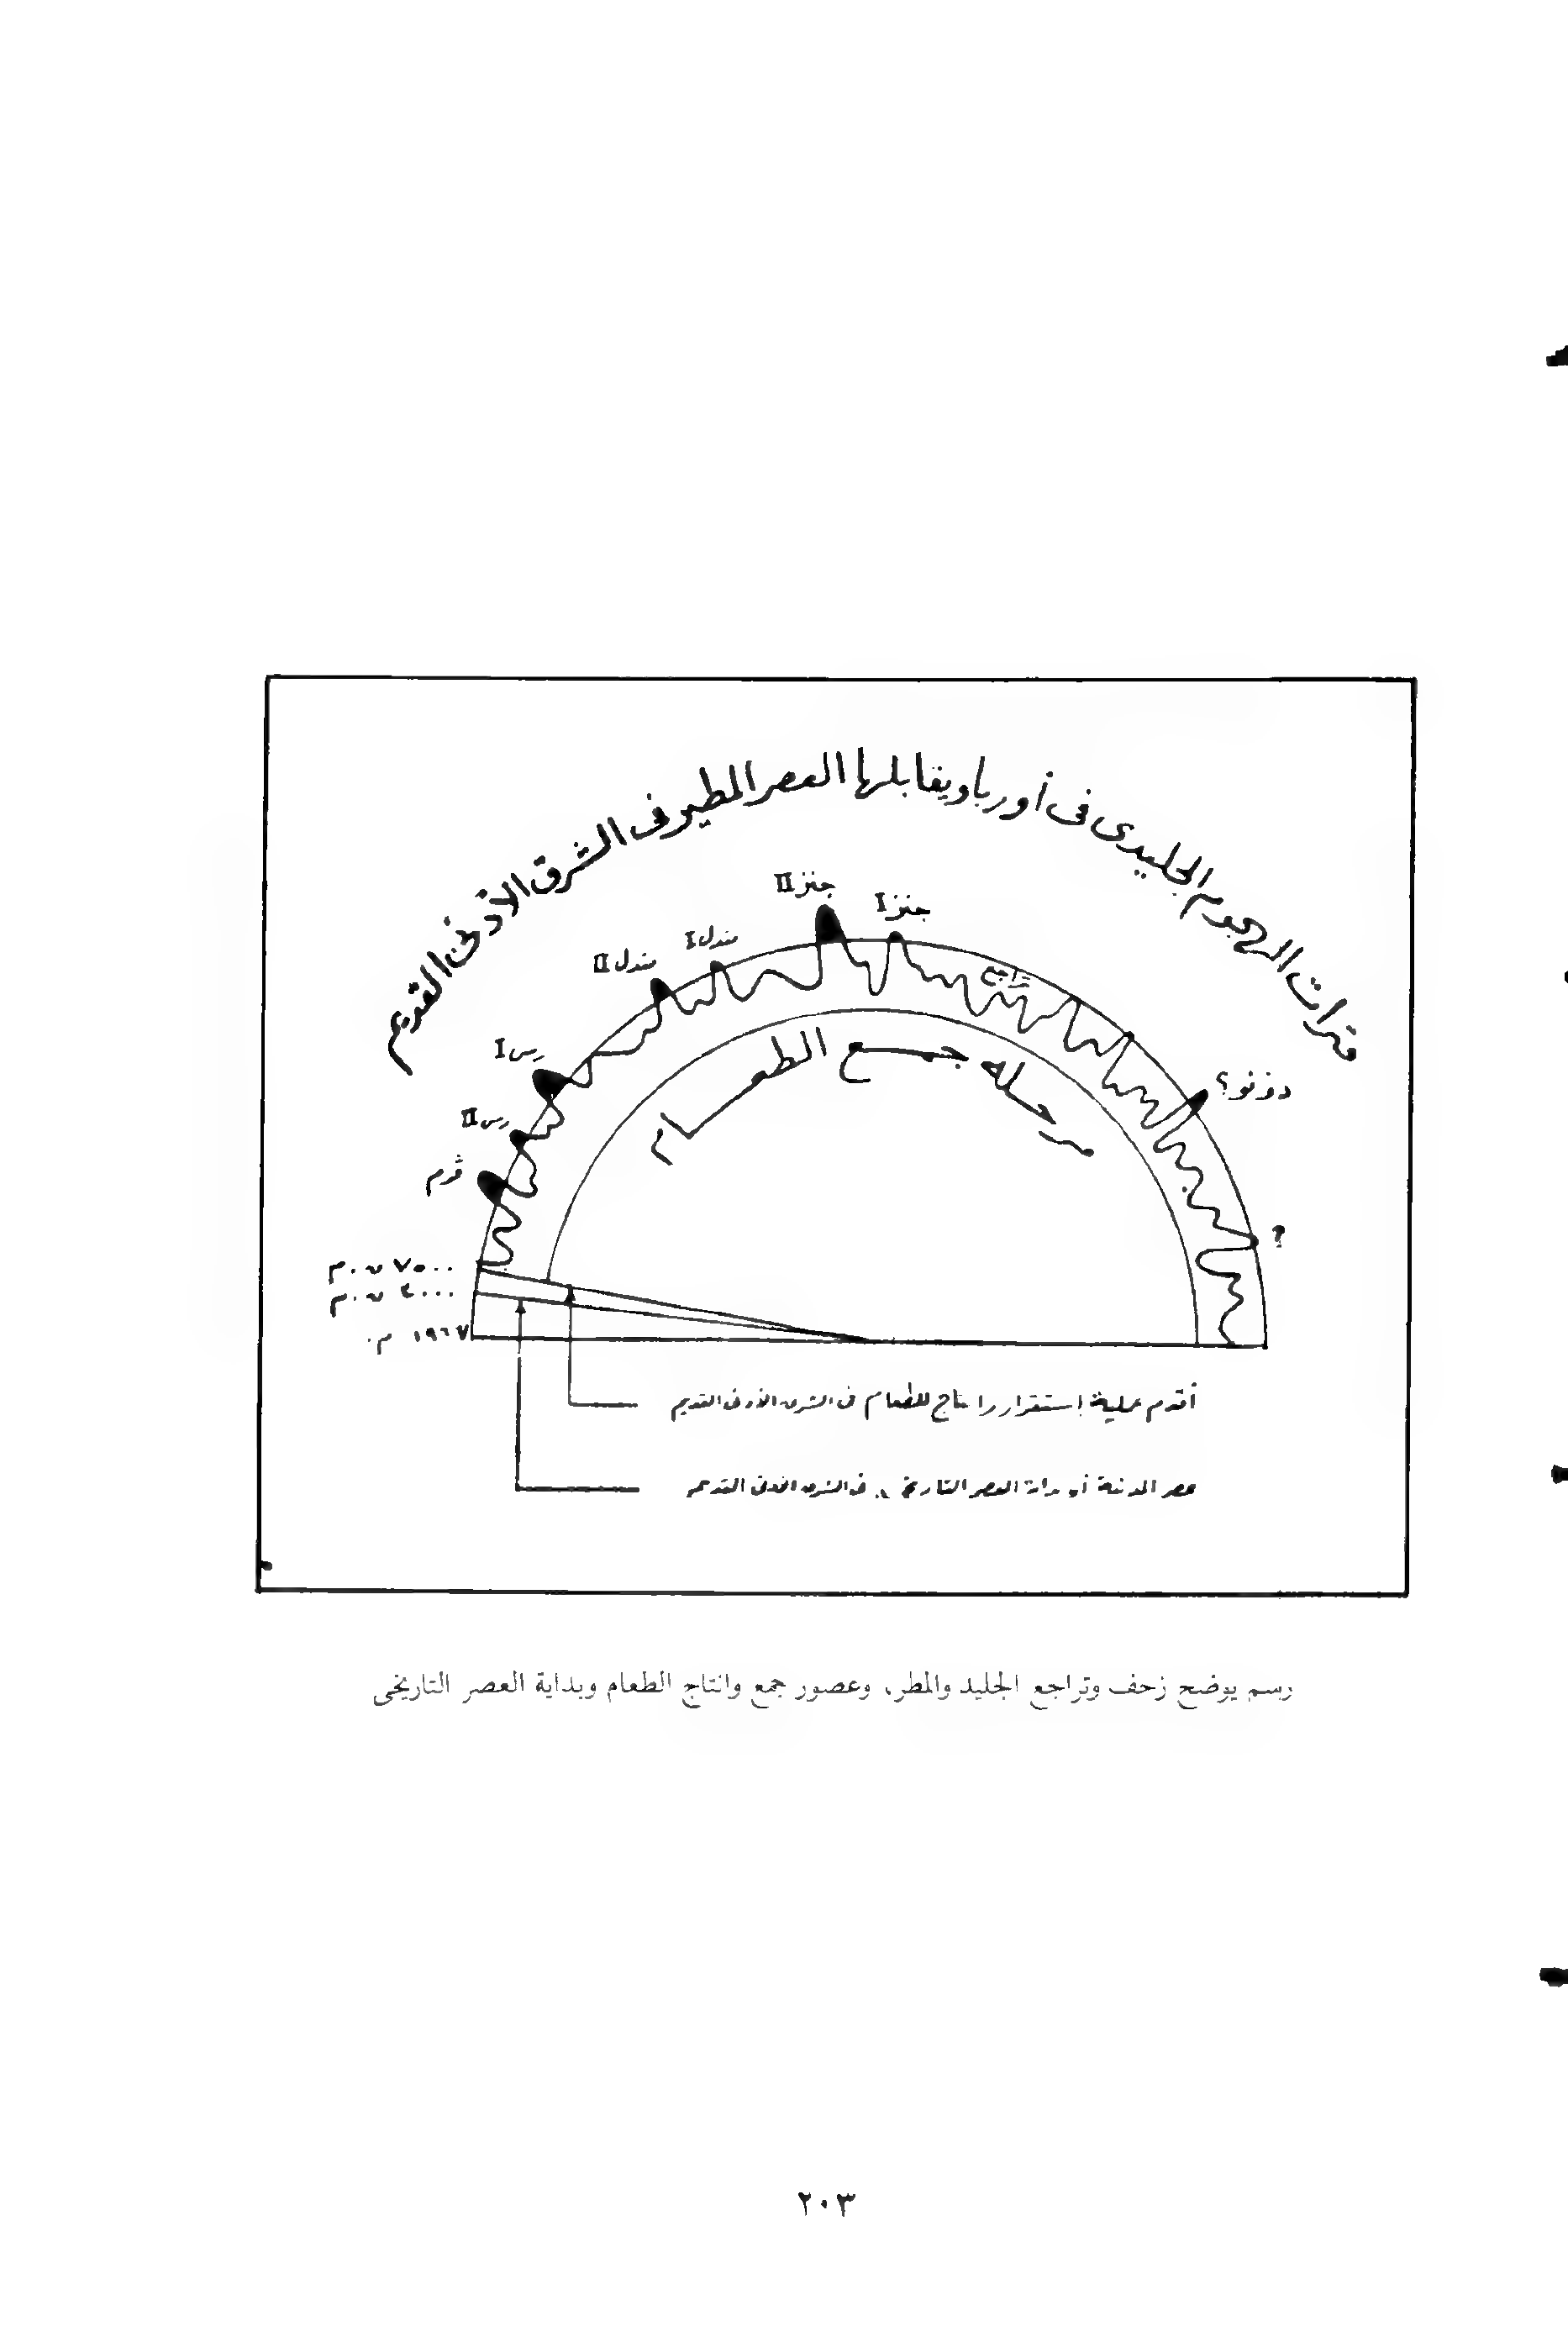 فترات الهجوم الجليدى فى أوربا ويقابلها العصر المطير فى الشرق الأدنى القديم
جنز II
جنز I
مندل I
مندل II
تراجع
رس I
رس II
ڤرم
دونو؟
?
مرحله جمع الطعام
٧٥٠٠ ق.م
٤٠٠٠ ق.م
١٩٦٧ م.
أقدم عملية إستقرار وإنتاج للطعام فى الشرق الأدنى القديم
عصر المدنية أو بداية العصر التاريخى فى الشرق الأدنى القديم
رسم يوضح زحف وتراجع الجليد والمطر، وعصور جمع وانتاج الطعام وبداية العصر التاريخى
٢٠٣